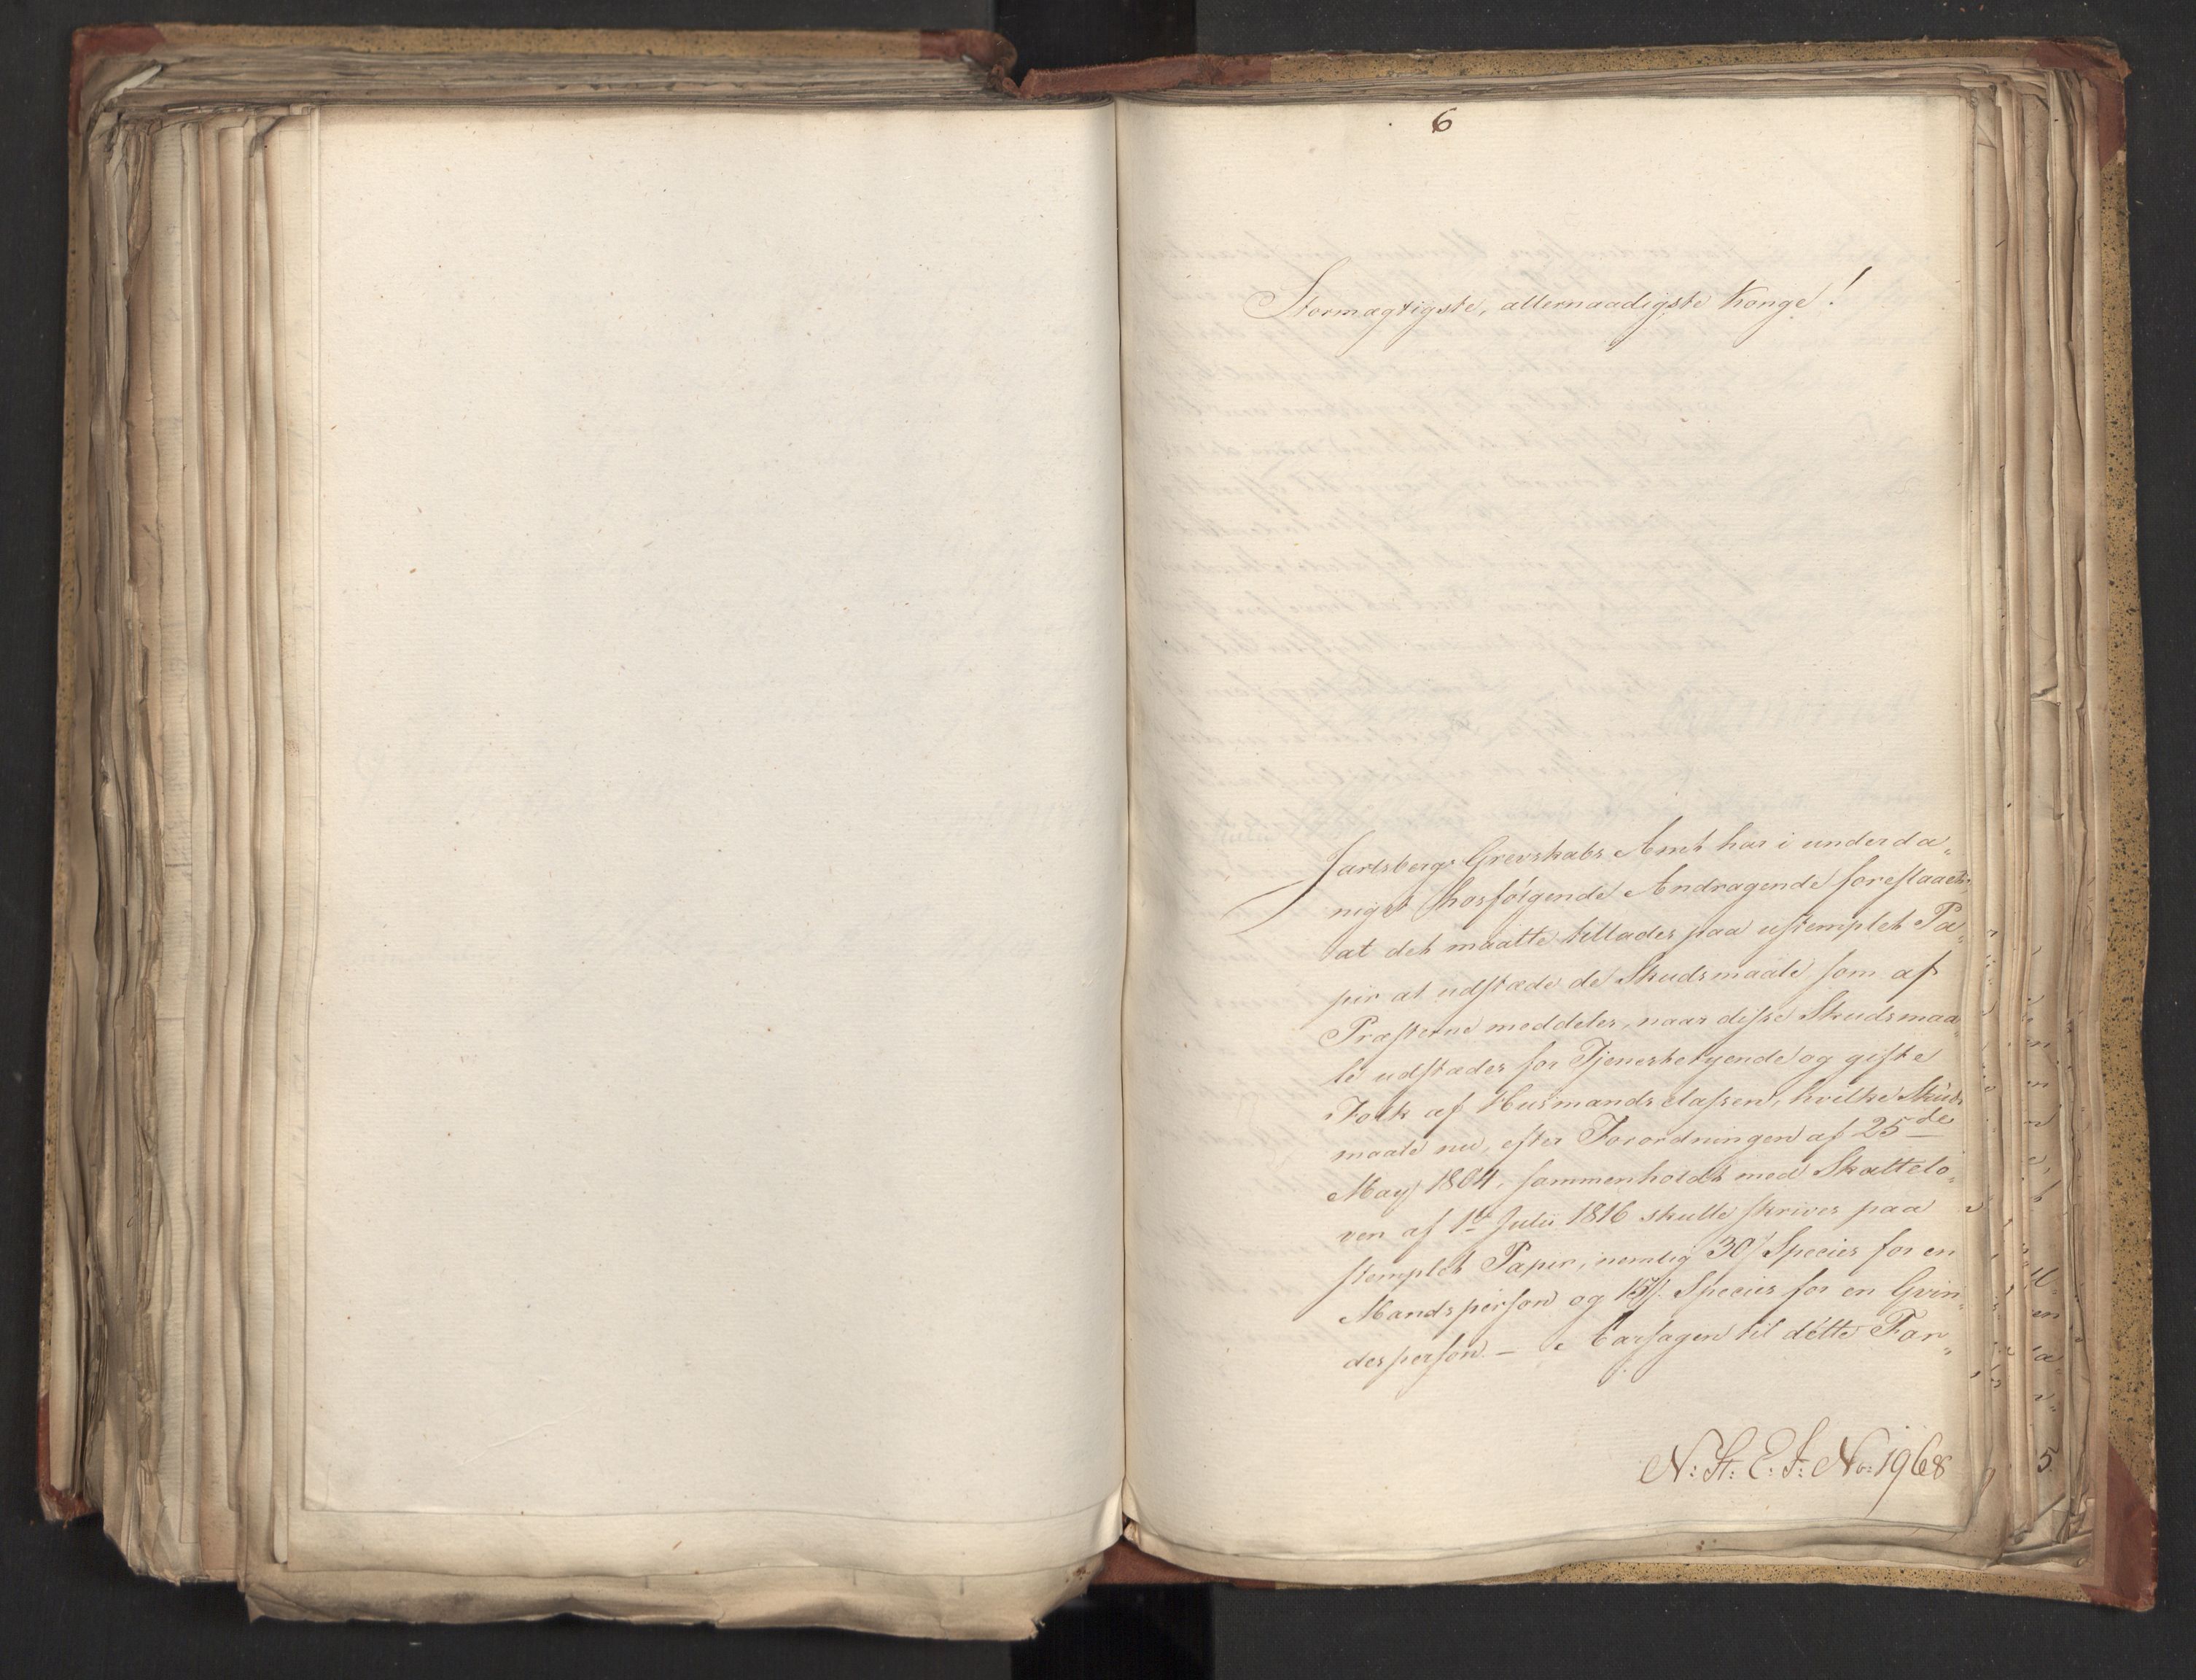 6
Stormægtigste, allernaadigste Konge!
Jarlsbergs Grevskabs Amt har i underda„
nigst hosfølgende Andragende foreslaaet,
at det maatte tillades paa ustemplet Pa„
pir at udstæde de Skudsmaale som af
Præsterne meddeles, naar disse Skudsmaa„
le udstædes for Tjenestetyende og gifte
Folk af Husmandsclassen, hvilke Skuds
maale nu, efter Forordningen af 25de
May 1804, sammenholdt med Skattelo„
ven af 1ste Julii 1816 skulle skrives paa
stemplet Papir, nemlig 30 s Species for en
Mandsperson og 15 s. Species for en Qvin„
desperson. – Aarsagen til dette For„
N: St: E: J: No: 1968
5